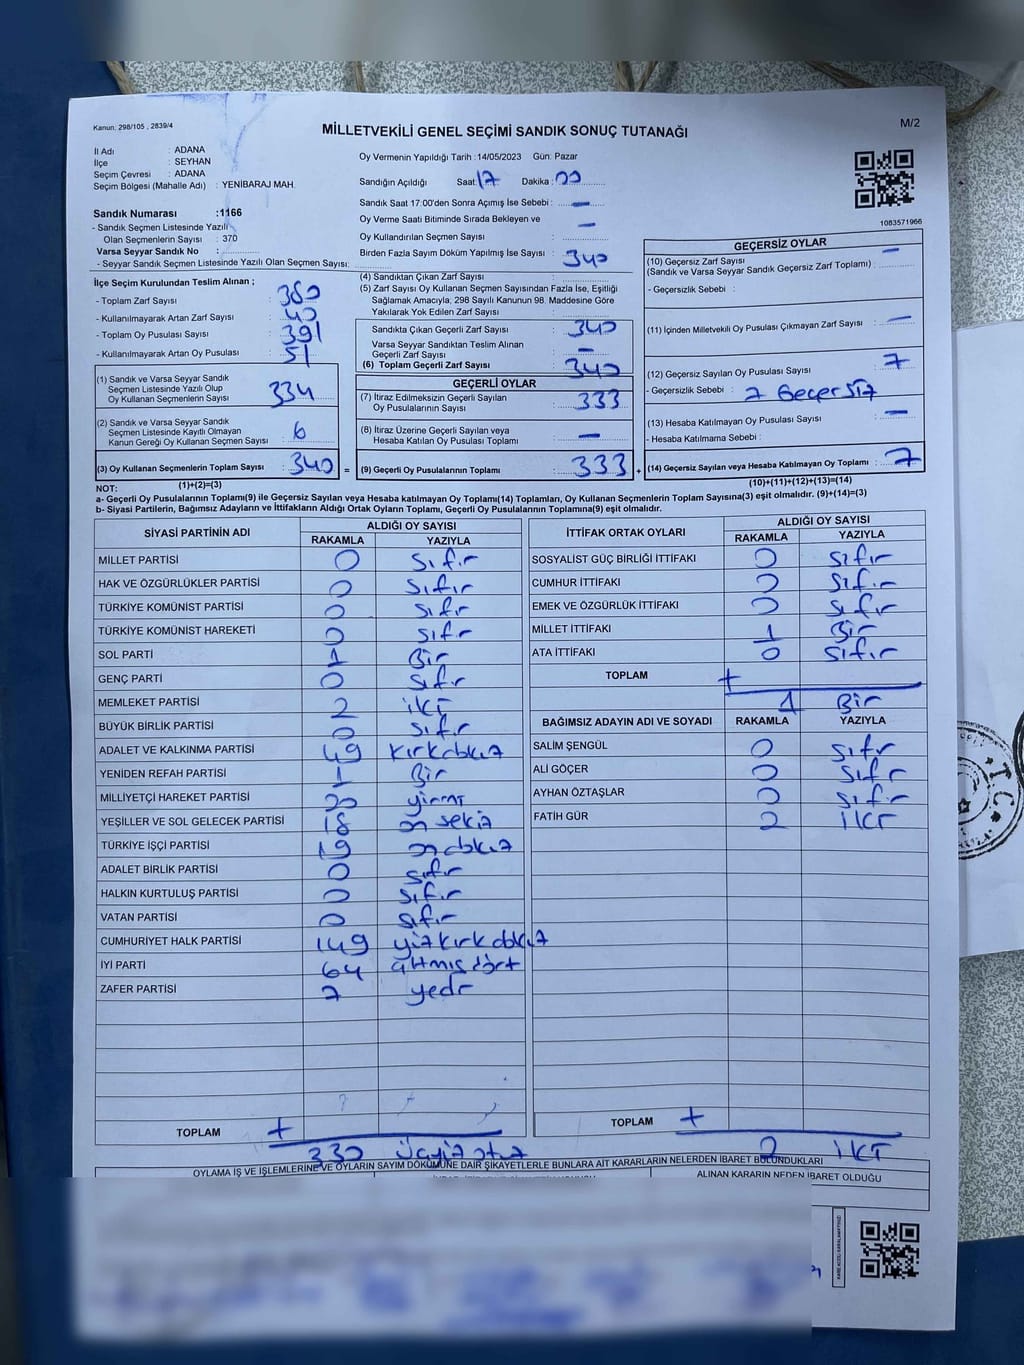 Kanun: 298/105 , 2839/4
MİLLETVEKİLİ GENEL SEÇİMİ SANDIK SONUÇ TUTANAĞI
M/2
İl Adı : ADANA
İlçe : SEYHAN
Seçim Çevresi : ADANA
Seçim Bölgesi (Mahalle Adı) : YENİBARAJ MAH.
Sandık Numarası :1166
- Sandık Seçmen Listesinde Yazılı
Olan Seçmenlerin Sayısı : 370
Varsa Seyyar Sandık No :
- Seyyar Sandık Seçmen Listesinde Yazılı Olan Seçmen Sayısı:
Oy Vermenin Yapıldığı Tarih : 14/05/2023 Gün: Pazar
Sandığın Açıldığı Saat: 17 Dakika : 00
Sandık Saat 17:00'den Sonra Açımış İse Sebebi : —
Oy Verme Saati Bitiminde Sırada Bekleyen ve
Oy Kullandırılan Seçmen Sayısı : —
Birden Fazla Sayım Döküm Yapılmış İse Sayısı : 340
1083571966
İlçe Seçim Kurulundan Teslim Alınan ;
- Toplam Zarf Sayısı : 380
- Kullanılmayarak Artan Zarf Sayısı : 40
- Toplam Oy Pusulası Sayısı : 391
- Kullanılmayarak Artan Oy Pusulası : 51
(1) Sandık ve Varsa Seyyar Sandık
Seçmen Listesinde Yazılı Olup
Oy Kullanan Seçmenlerin Sayısı : 334
(2) Sandık ve Varsa Seyyar Sandık
Seçmen Listesinde Kayıtlı Olmayan
Kanun Gereği Oy Kullanan Seçmen Sayısı : 6
(3) Oy Kullanan Seçmenlerin Toplam Sayısı : 340
(1)+(2)=(3)
(4) Sandıktan Çıkan Zarf Sayısı :
(5) Zarf Sayısı Oy Kullanan Seçmen Sayısından Fazla İse, Eşitliği
Sağlamak Amacıyla, 298 Sayılı Kanunun 98. Maddesine Göre
Yakılarak Yok Edilen Zarf Sayısı :
Sandıkta Çıkan Geçerli Zarf Sayısı : 340
Varsa Seyyar Sandıktan Teslim Alınan
Geçerli Zarf Sayısı : —
(6) Toplam Geçerli Zarf Sayısı : 340
GEÇERLİ OYLAR
(7) İtiraz Edilmeksizin Geçerli Sayılan
Oy Pusulalarının Sayısı : 333
(8) İtiraz Üzerine Geçerli Sayılan veya
Hesaba Katılan Oy Pusulası Toplamı : —
= (9) Geçerli Oy Pusulalarının Toplamı : 333 +
GEÇERSİZ OYLAR
(10) Geçersiz Zarf Sayısı : —
(Sandık ve Varsa Seyyar Sandık Geçersiz Zarf Toplamı)
- Geçersizlik Sebebi :
(11) İçinden Milletvekili Oy Pusulası Çıkmayan Zarf Sayısı : —
(12) Geçersiz Sayılan Oy Pusulası Sayısı : 7
- Geçersizlik Sebebi : 7 Geçersiz
(13) Hesaba Katılmayan Oy Pusulası Sayısı : —
- Hesaba Katılmama Sebebi :
(14) Geçersiz Sayılan veya Hesaba Katılmayan Oy Toplamı : 7
(10)+(11)+(12)+(13)=(14)
NOT:
a- Geçerli Oy Pusulalarının Toplamı(9) ile Geçersiz Sayılan veya Hesaba katılmayan Oy Toplamı(14) Toplamları, Oy Kullanan Seçmenlerin Toplam Sayısına(3) eşit olmalıdır. (9)+(14)=(3)
b- Siyasi Partilerin, Bağımsız Adayların ve İttifakların Aldığı Ortak Oyların Toplamı, Geçerli Oy Pusulalarının Toplamına(9) eşit olmalıdır.
SİYASİ PARTİNİN ADI ALDIĞI OY SAYISI
RAKAMLA YAZIYLA
MİLLET PARTİSİ 0 sıfır
HAK VE ÖZGÜRLÜKLER PARTİSİ 0 sıfır
TÜRKİYE KOMÜNİST PARTİSİ 0 sıfır
TÜRKİYE KOMÜNİST HAREKETİ 0 sıfır
SOL PARTİ 1 Bir
GENÇ PARTİ 0 sıfır
MEMLEKET PARTİSİ 2 iki
BÜYÜK BİRLİK PARTİSİ 0 sıfır
ADALET VE KALKINMA PARTİSİ 49 kırkdokuz
YENİDEN REFAH PARTİSİ 1 Bir
MİLLİYETÇİ HAREKET PARTİSİ 20 yirmi
YEŞİLLER VE SOL GELECEK PARTİSİ 18 on sekiz
TÜRKİYE İŞÇİ PARTİSİ 19 ondokuz
ADALET BİRLİK PARTİSİ 0 sıfır
HALKIN KURTULUŞ PARTİSİ 0 sıfır
VATAN PARTİSİ 0 sıfır
CUMHURİYET HALK PARTİSİ 149 yüzkırkdokuz
İYİ PARTİ 64 altmışdört
ZAFER PARTİSİ 7 yedi
TOPLAM +
330 üçyüz otuz
İTTİFAK ORTAK OYLARI ALDIĞI OY SAYISI
RAKAMLA YAZIYLA
SOSYALİST GÜÇ BİRLİĞİ İTTİFAKI 0 sıfır
CUMHUR İTTİFAKI 0 sıfır
EMEK VE ÖZGÜRLÜK İTTİFAKI 0 sıfır
MİLLET İTTİFAKI 1 Bir
ATA İTTİFAKI 0 sıfır
TOPLAM +
1 Bir
BAĞIMSIZ ADAYIN ADI VE SOYADI RAKAMLA YAZIYLA
SALİM ŞENGÜL 0 sıfır
ALİ GÖÇER 0 sıfır
AYHAN ÖZTAŞLAR 0 sıfır
FATİH GÜR 2 iki
TOPLAM +
2 iki
OYLAMA İŞ VE İŞLEMLERİNE VE OYLARIN SAYIM DÖKÜMÜNE DAİR ŞİKAYETLERLE BUNLARA AİT KARARLARIN NELERDEN İBARET BULUNDUKLARI
ALINAN KARARIN NEDEN İBARET OLDUĞU
T.C.